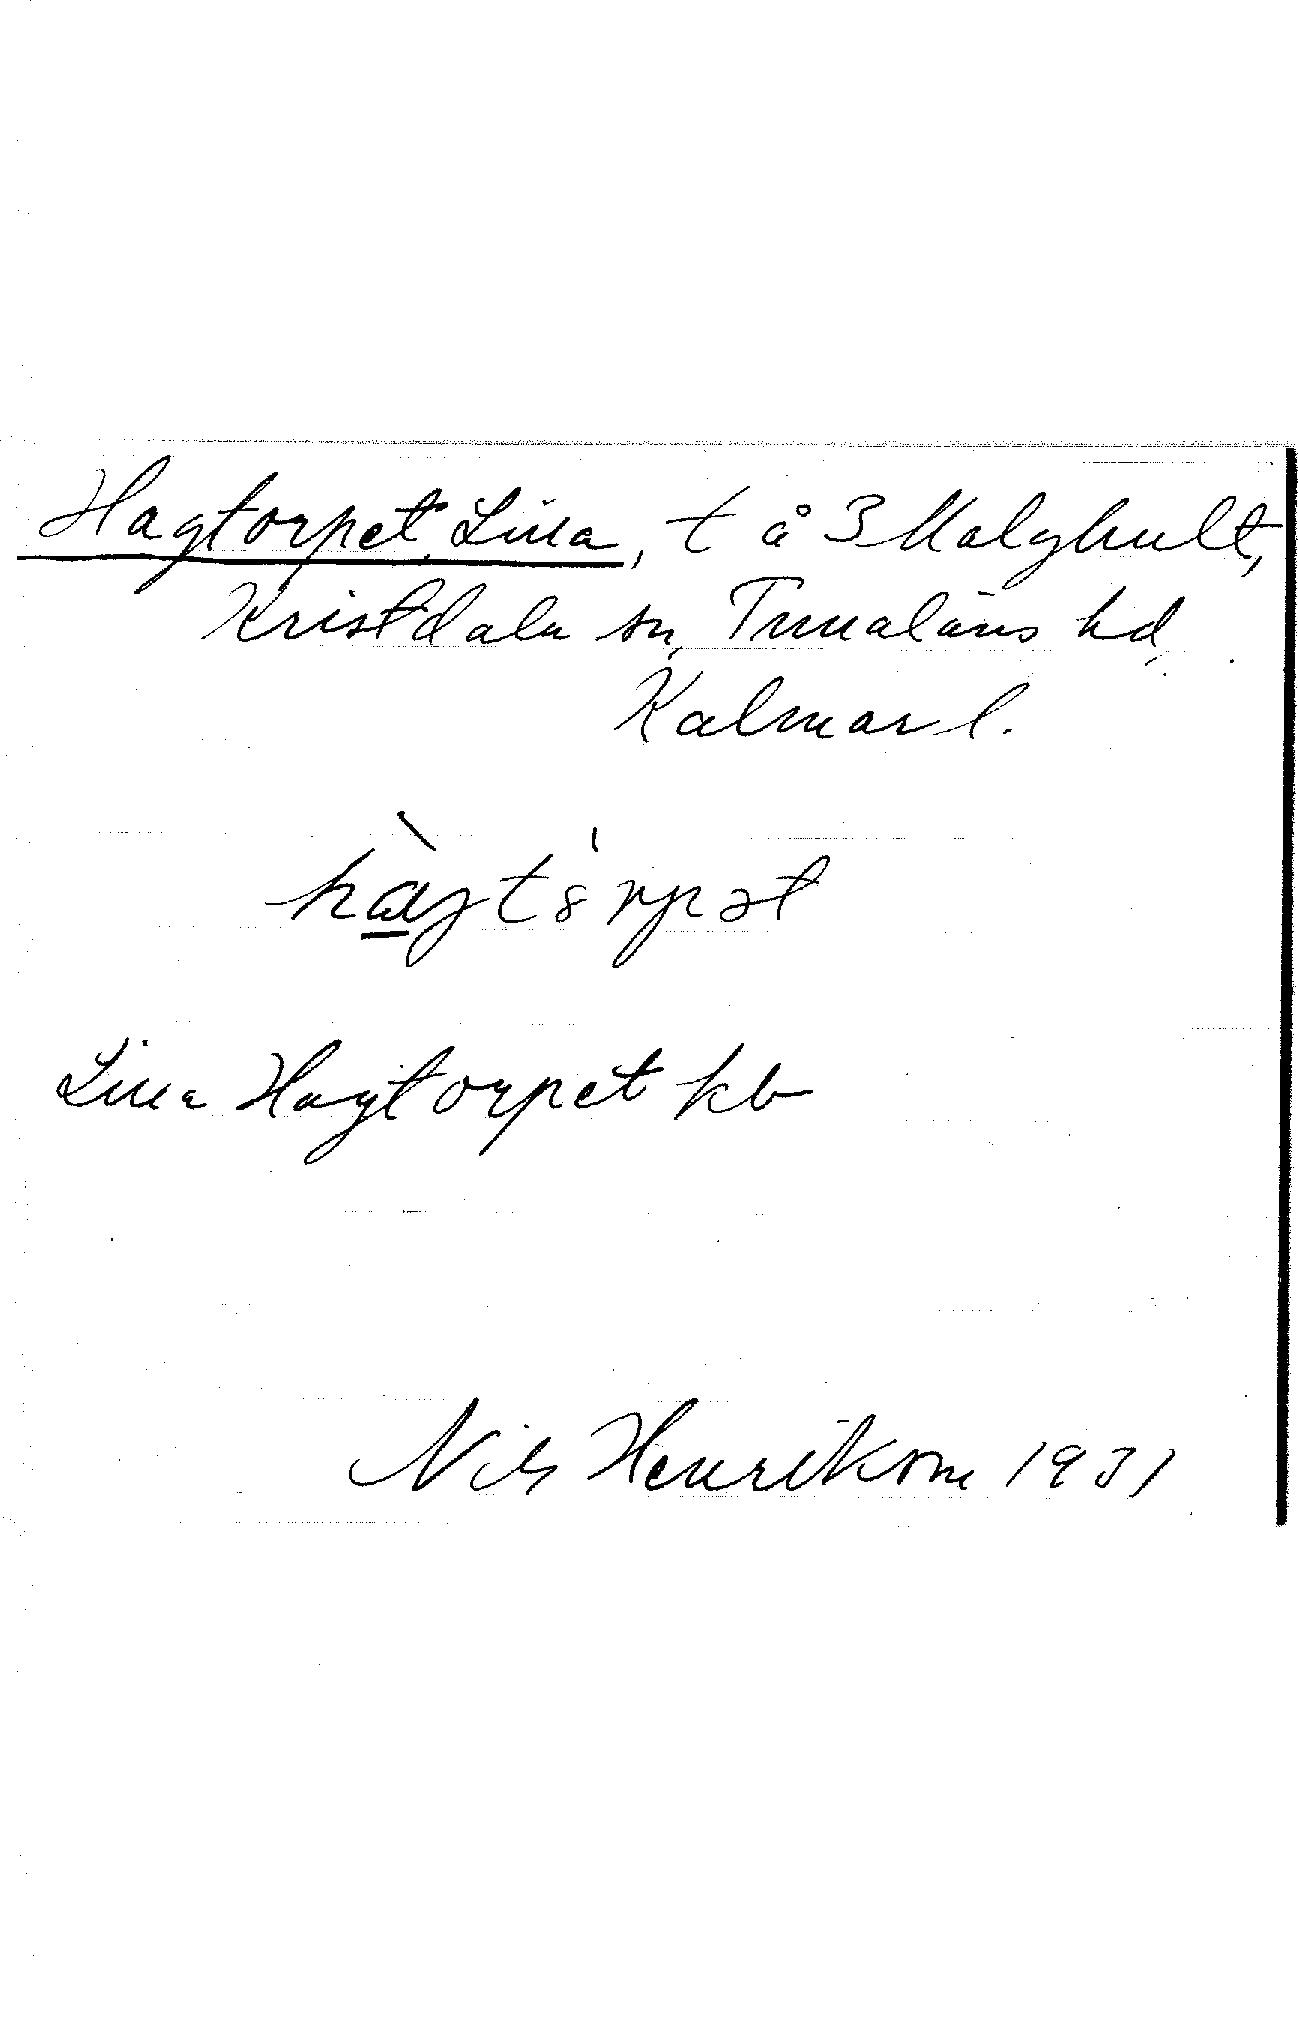 Hagtorpet, Lilla, t å 3 Malghult,
Kristdala sn, Tunaläns hd,
Kalmar l.
Lilla Hagtorpet kb
Nils Henrikson 1931